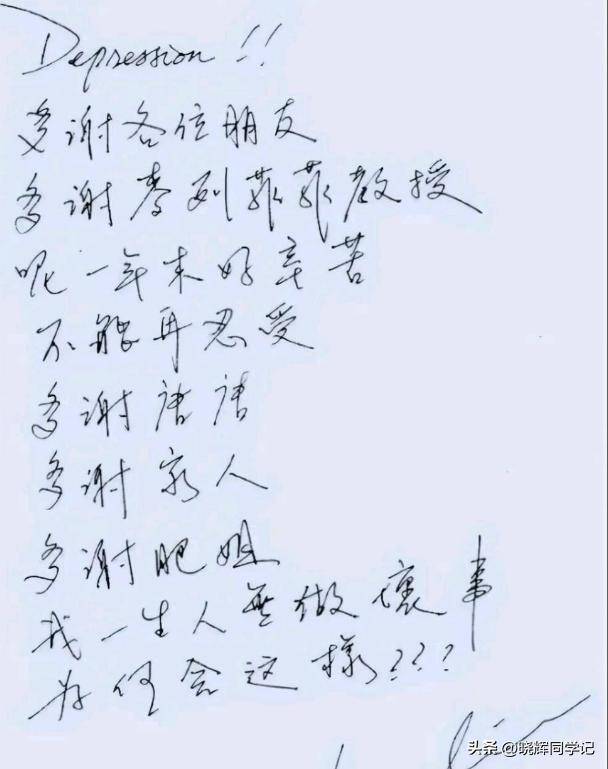 Depression!!
多谢各位朋友
多谢麦列菲菲教授
呢一年来好辛苦
不能再忍受
多谢唐唐
多谢家人
多谢肥姐
我一生人無做壞事
为何会这樣???
头条 @晓辉同学记